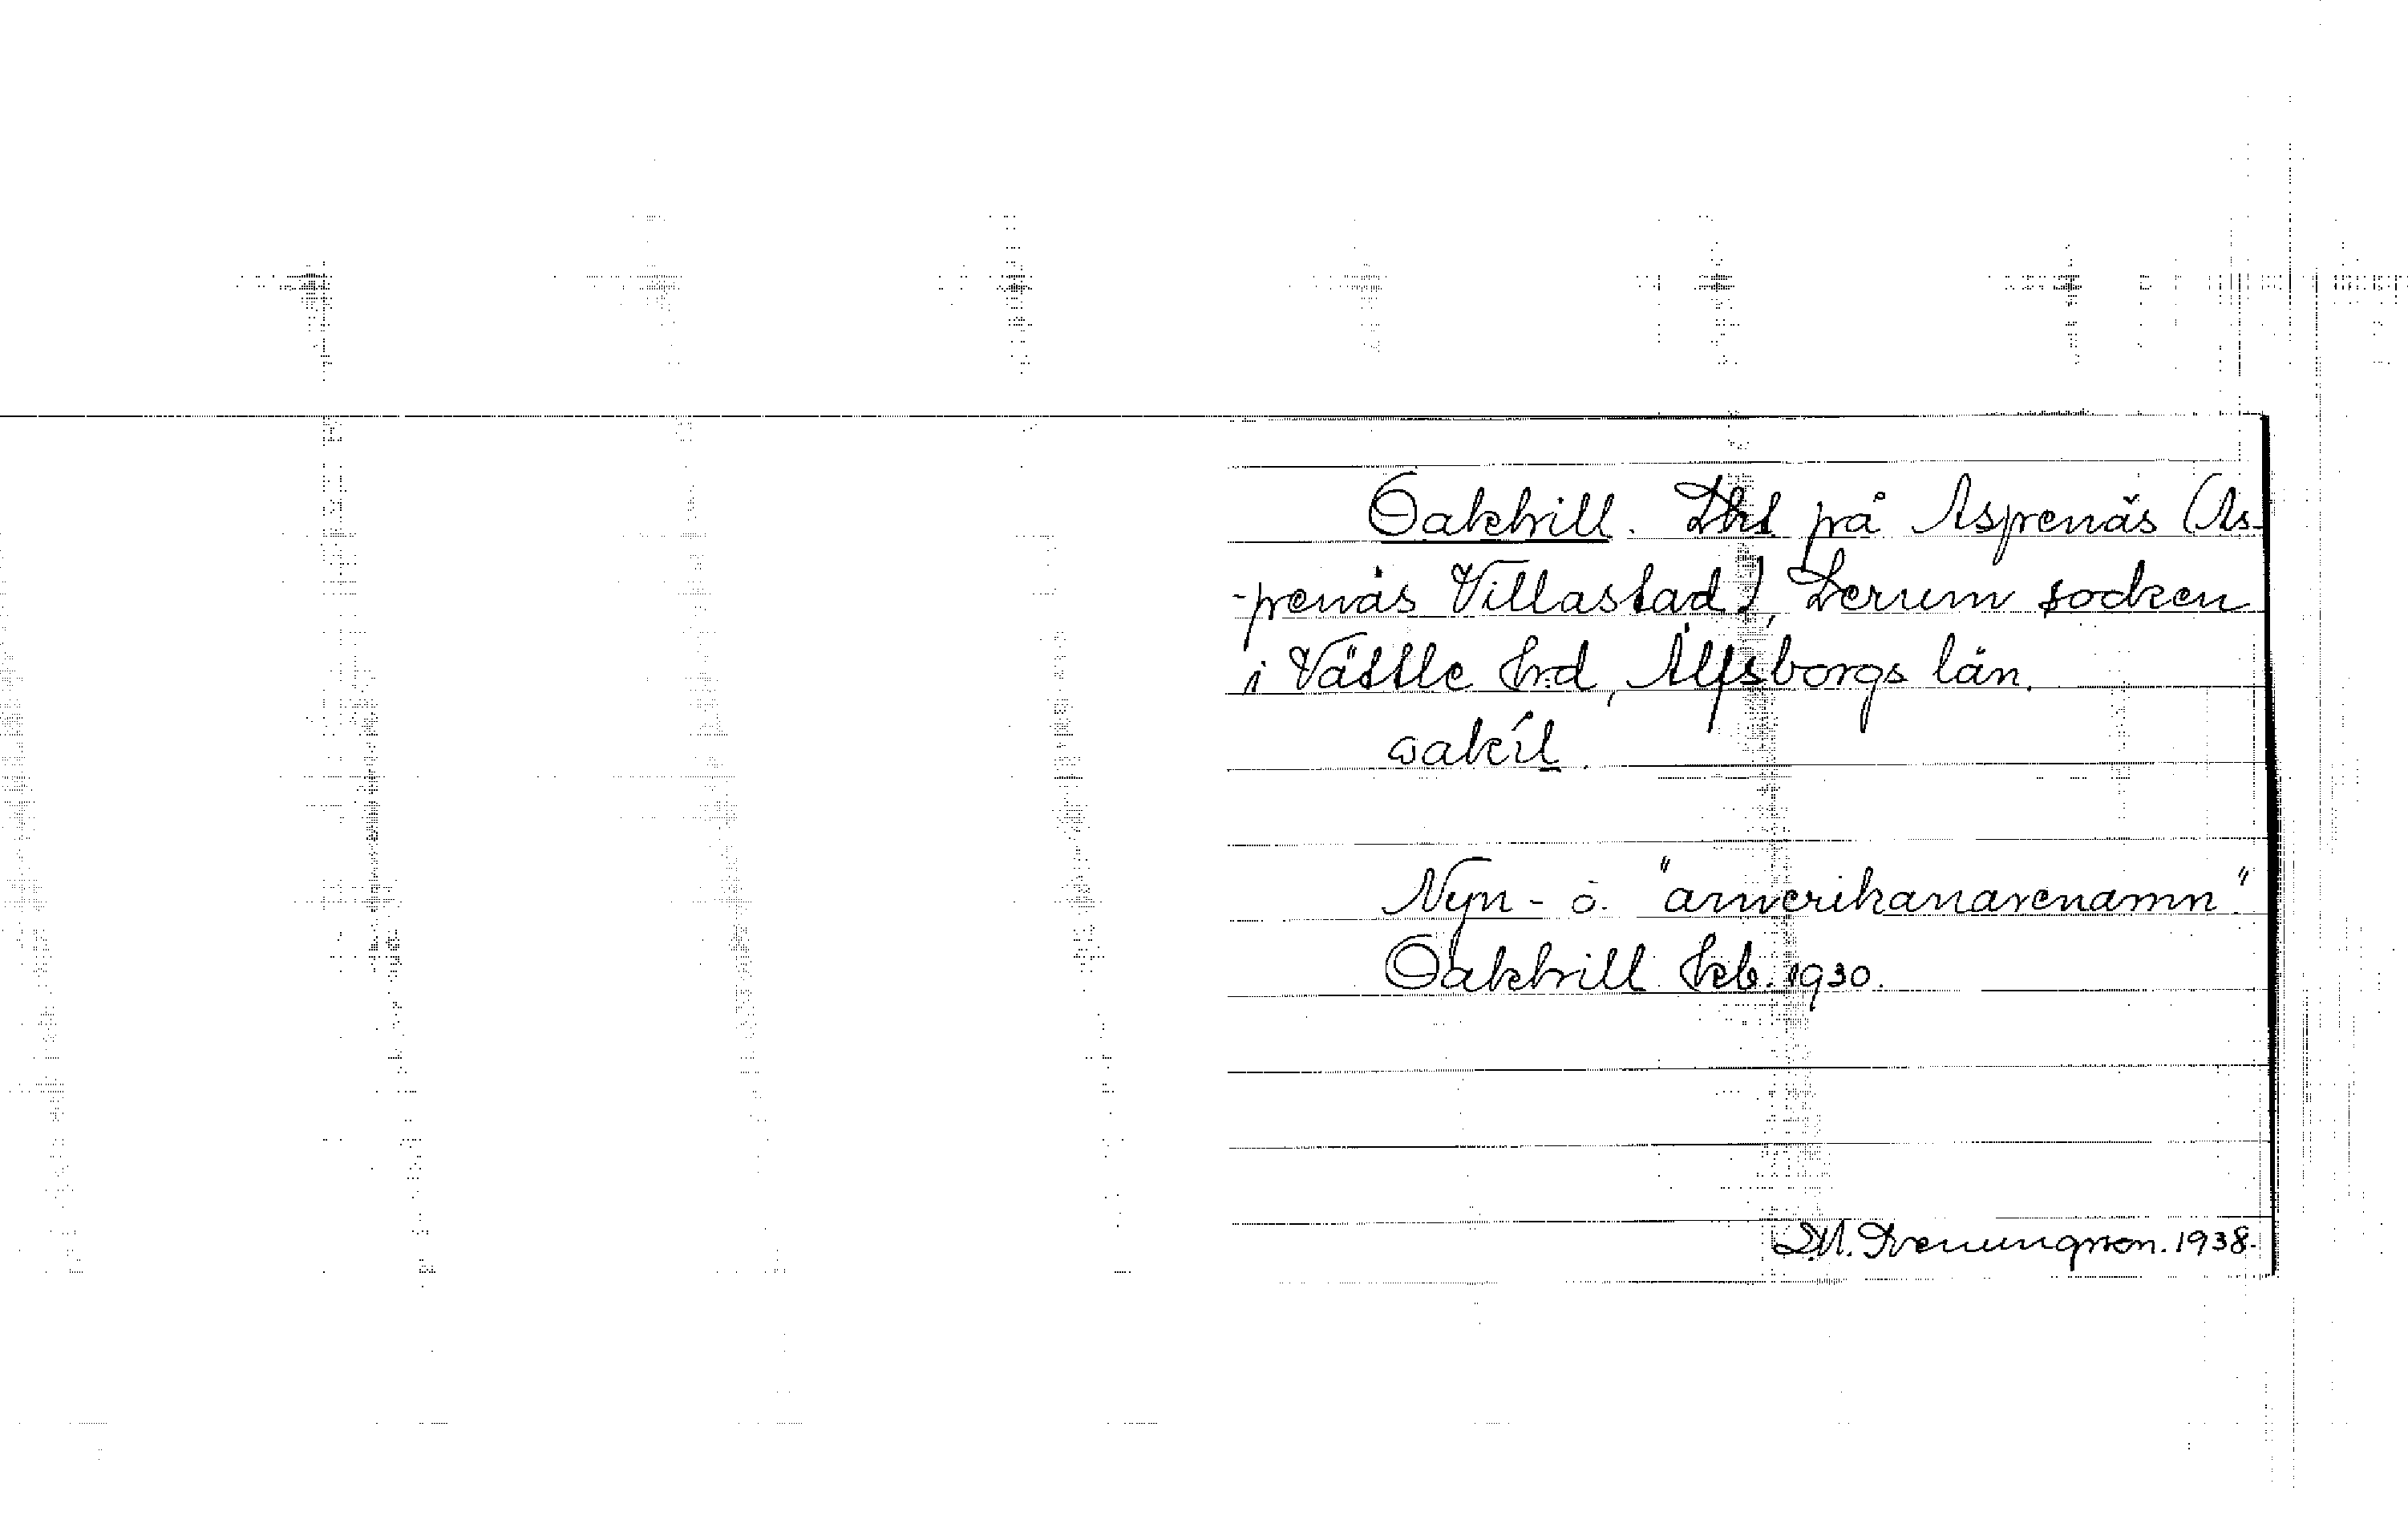 Oakhill. Lht på Aspenäs (As-
-penäs Villastad), Lerum socken
i Vättle hrd, Älfsborgs län.
ɷakíl.
Nyn- o. "amerikanarenamn."
Oakhill Ekb. 1930.
D.M. Svenungsson. 1938.